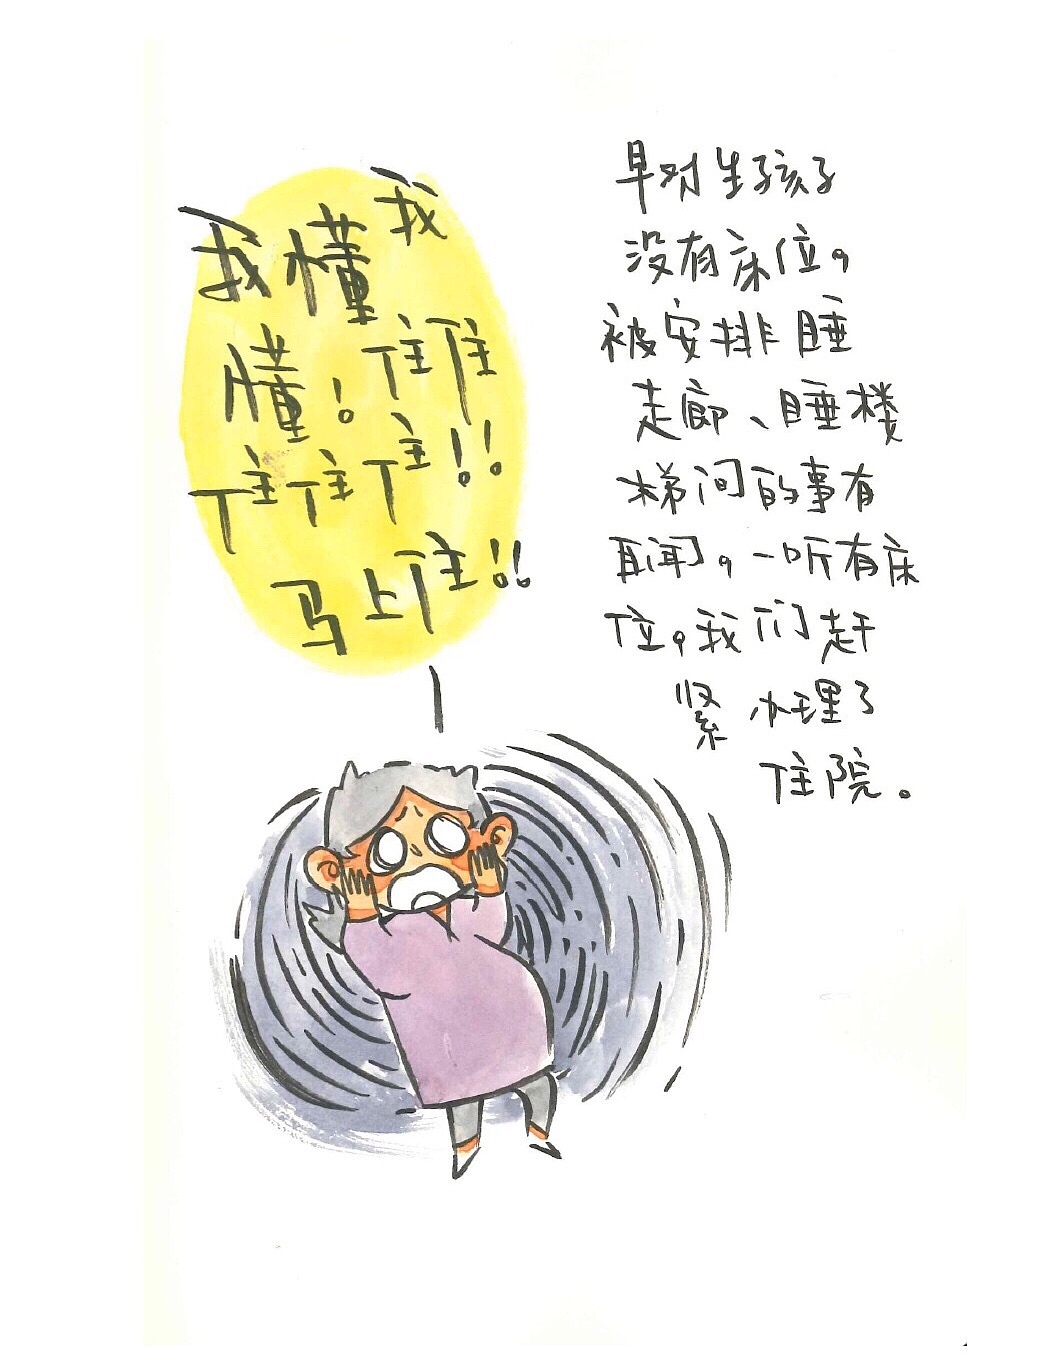 我
我懂
懂！住住
住住住!!
马上住!!
早对生孩子
没有床位，
被安排睡
走廊、睡楼
梯间的事有
耳闻，一听有床
位，我们赶
紧办理了
住院。